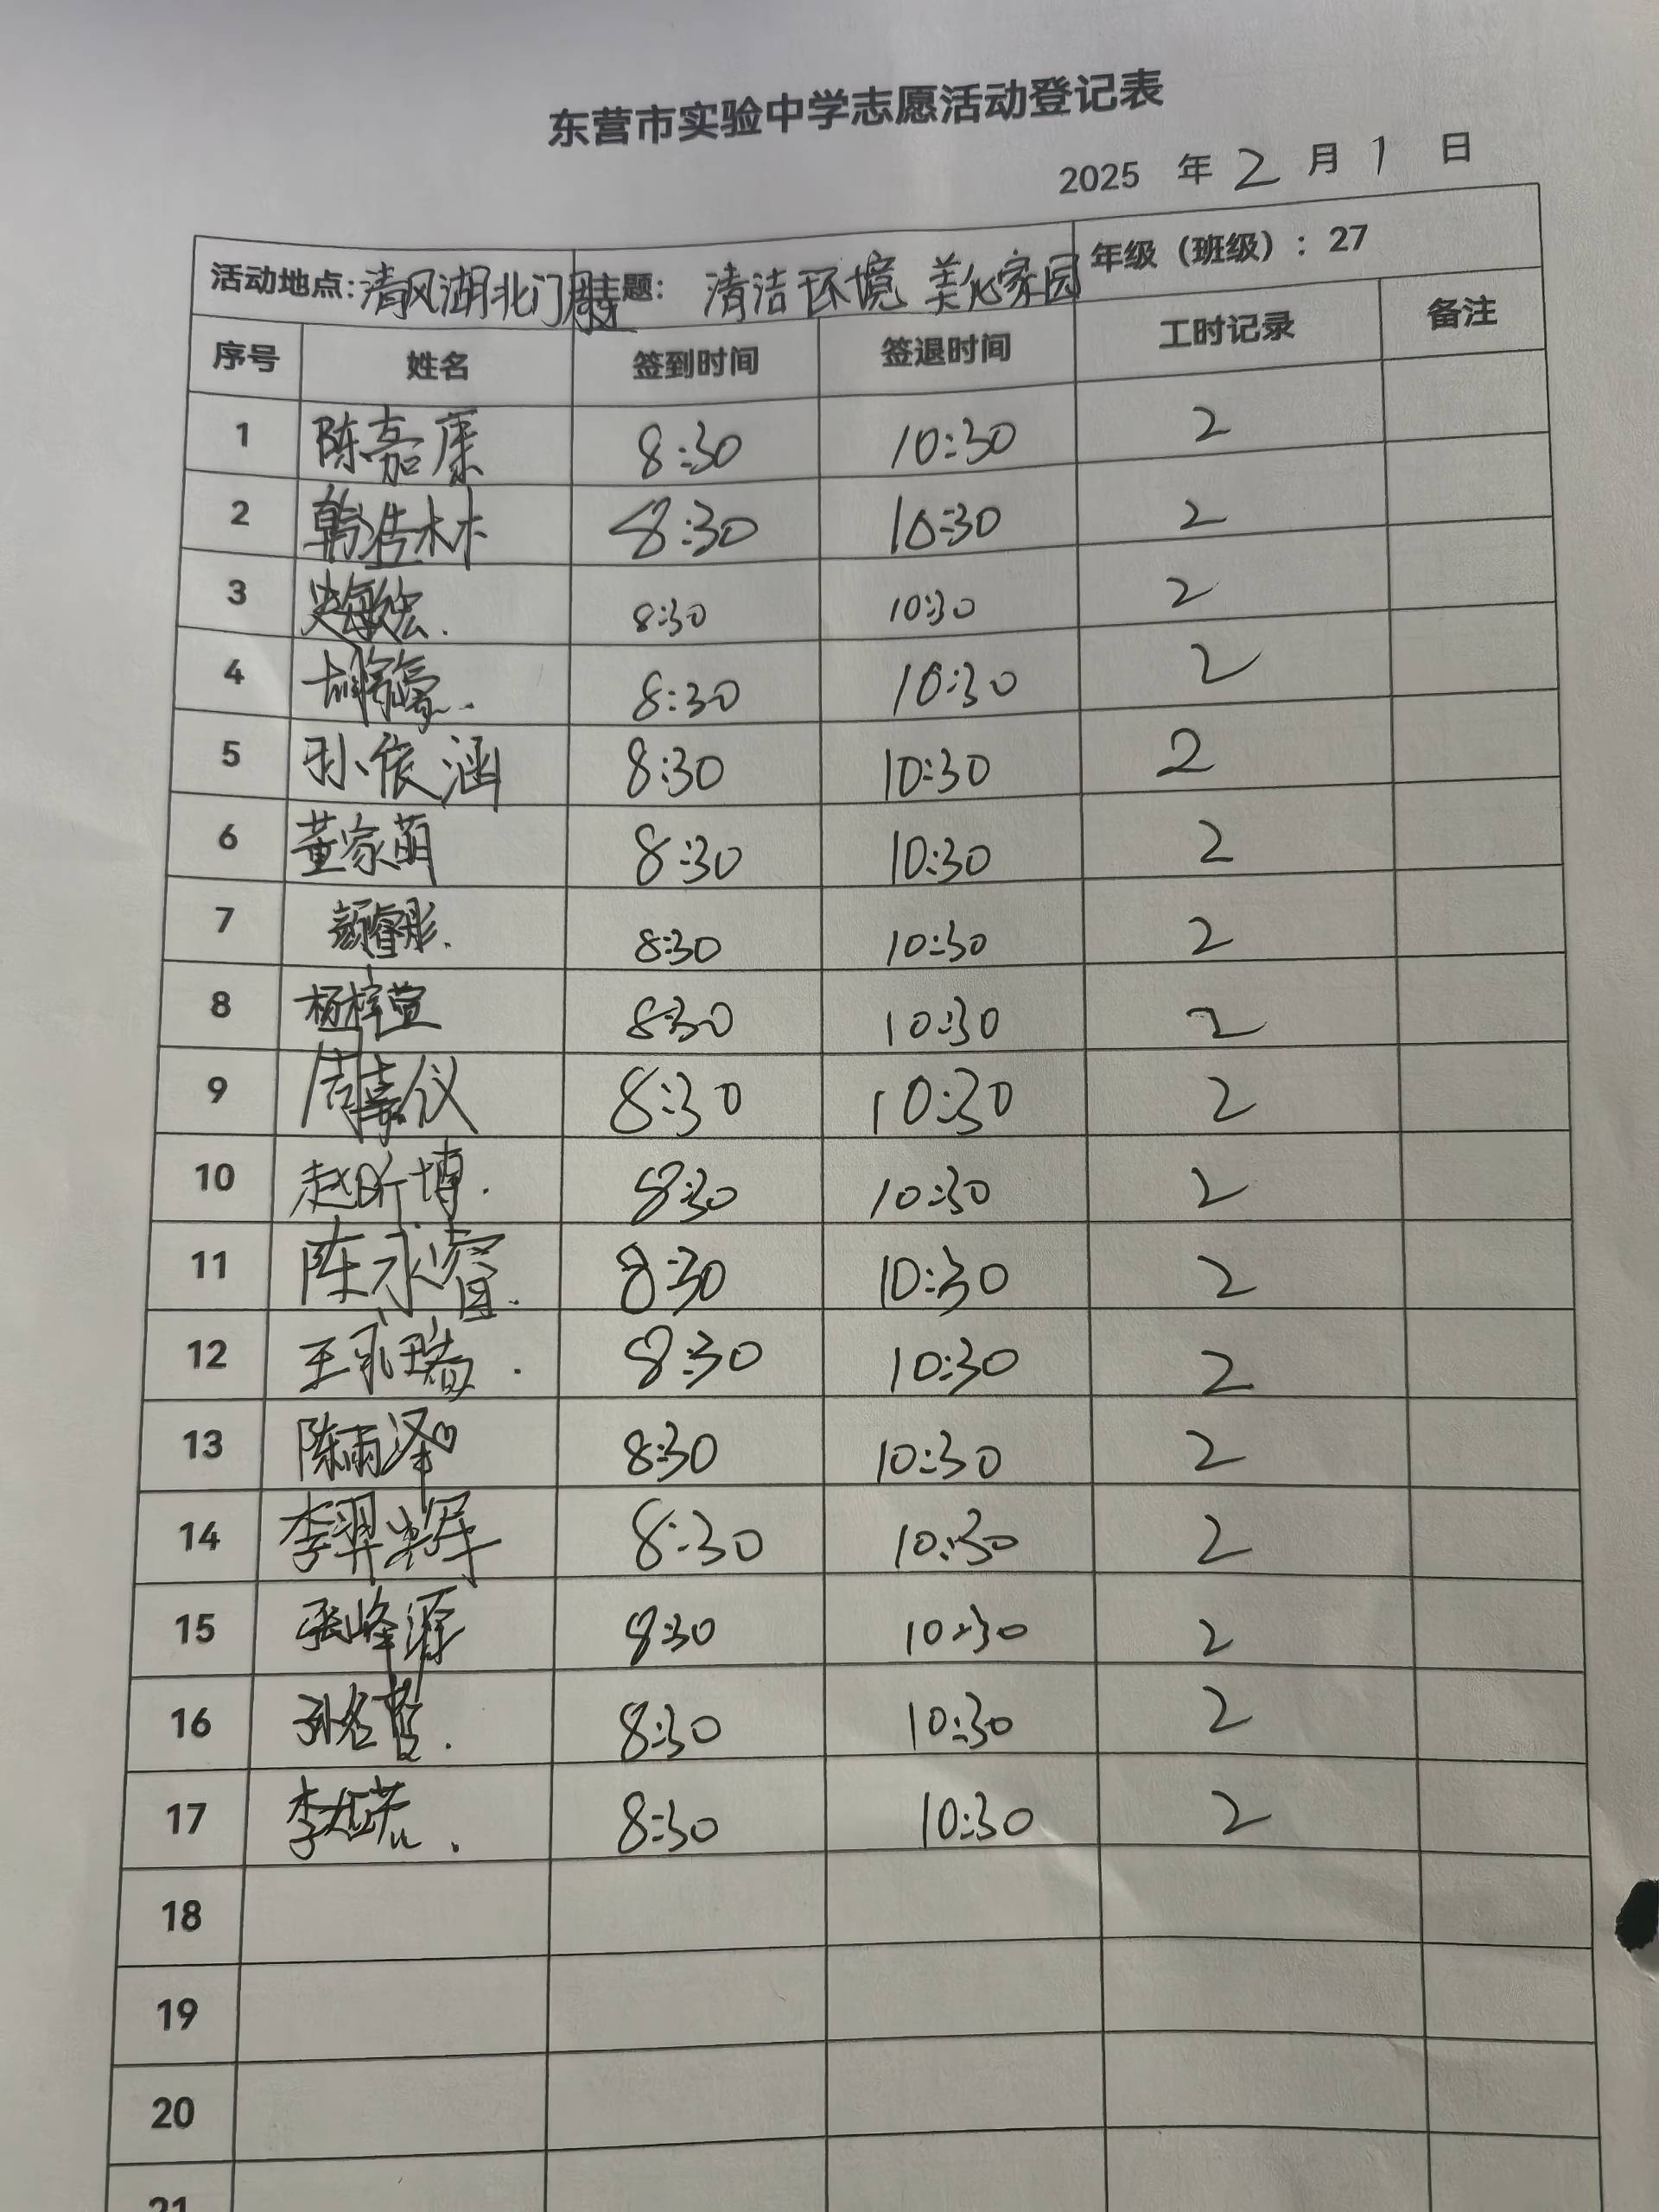 东营市实验中学志愿活动登记表
2025 年 2 月 1 日
活动地点:清风湖北门 主题: 清洁环境 美化家园 年级（班级）: 27
序号 姓名 签到时间 签退时间 工时记录 备注
1 陈嘉康 8:30 10:30 2
2 韩浩林 8:30 10:30 2
3 史敏宏. 8:30 10:30 2
4 胡 8:30 10:30 2
5 孙依涵 8:30 10:30 2
6 董家萌 8:30 10:30 2
7 颜睿彤. 8:30 10:30 2
8 杨梓萱 8:30 10:30 2
9 周嘉仪 8:30 10:30 2
10 赵昕博. 8:30 10:30 2
11 陈永睿. 8:30 10:30 2
12 王永瑞. 8:30 10:30 2
13 陈雨泽 8:30 10:30 2
14 李羿辉 8:30 10:30 2
15 张峰源 8:30 10:30 2
16 孙名哲. 8:30 10:30 2
17 李 8:30 10:30 2
18
19
20
21